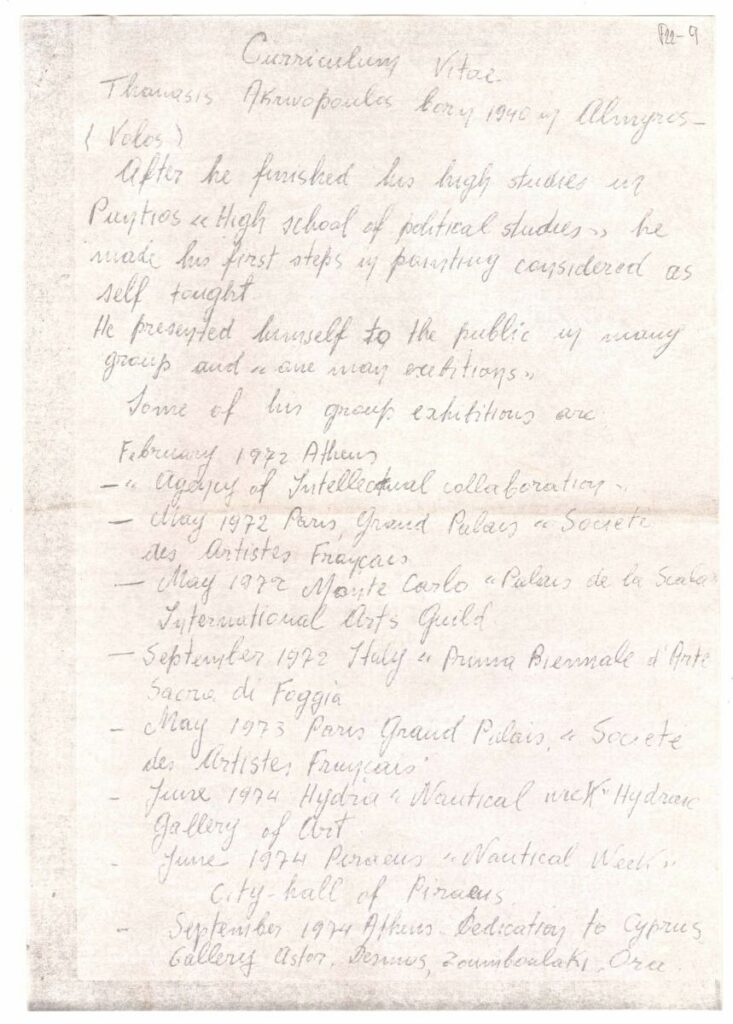 P22-9
Curriculum Vitae
Thanasis Akrivopoulos born 1940 in Almyros-
(Volos)
After he finished his high studies in
"High school of political studies" he
made his first steps in painting considered as
self tought
He presented himself to the public in many
group and "one man exitions"
Some of his group exhibitions are
February 1972 Athens
- "Agency of Intellectual collaboration"
- May 1972 Paris, Grand Palais "Societe
des Artistes Français
- May 1972 Monte Carlo "Palais de la Scala"
International Arts Guild
- September 1972 Italy "Prima Biennale d'Arte
Sacra di Foggia
- May 1973 Paris Grand Palais, "Societe
des Artistes Français"
- June 1974 Hydra "Nautical week"
Gallery of Art
- June 1974 Piraeus "Nautical Week"
City-hall of Piraeus
- September 1974 Athens Dedication to Cyprus
Gallery Astor, Desmos, Zoumboulaki, Ora